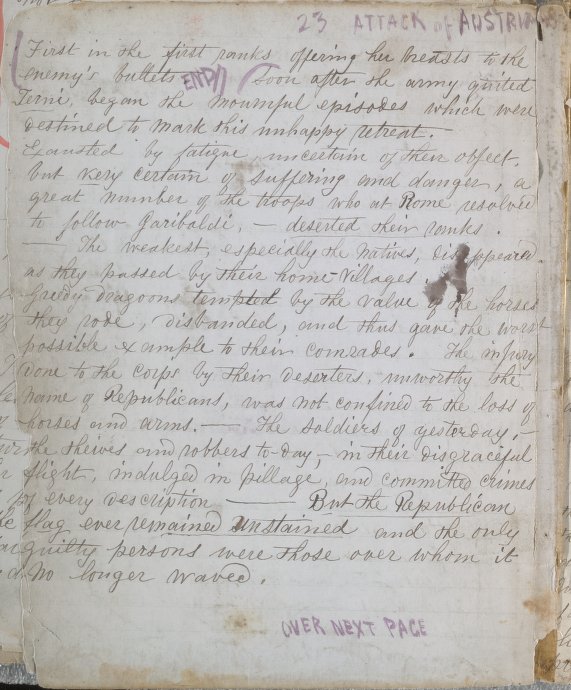 23 ATTACK of AUSTRIA
First in the first ranks offering her breasts to the
enemy's bullets END Soon after the army quited
Terni, began the mournful episodes which were
destined to mark this unhappy retreat.—
Exausted by fatigue, uncertain of their object,
but very certain of suffering and danger, a
great number of the troops who at Rome resolved
to follow Garibaldi, — deserted their ranks.
— The weakest, especially the natives, disappeared
as they passed by their home-villages
Greedy Dragoons tempted by the value of the horses
they rode, disbanded, and thus gave the worst
possible example to their comrades. The injury
done to the corps by their deserters, unworthy the
name of Republicans, was not confined to the loss of
horses and arms.— The soldiers of yesterday,—
the theives and robbers to-day,— in their disgraceful
flight, indulged in pillage, and committed crimes
of every description —— But the Republican
flag ever remained unstained and the only
guilty persons were those over whom it
no longer waved.
OVER NEXT PAGE